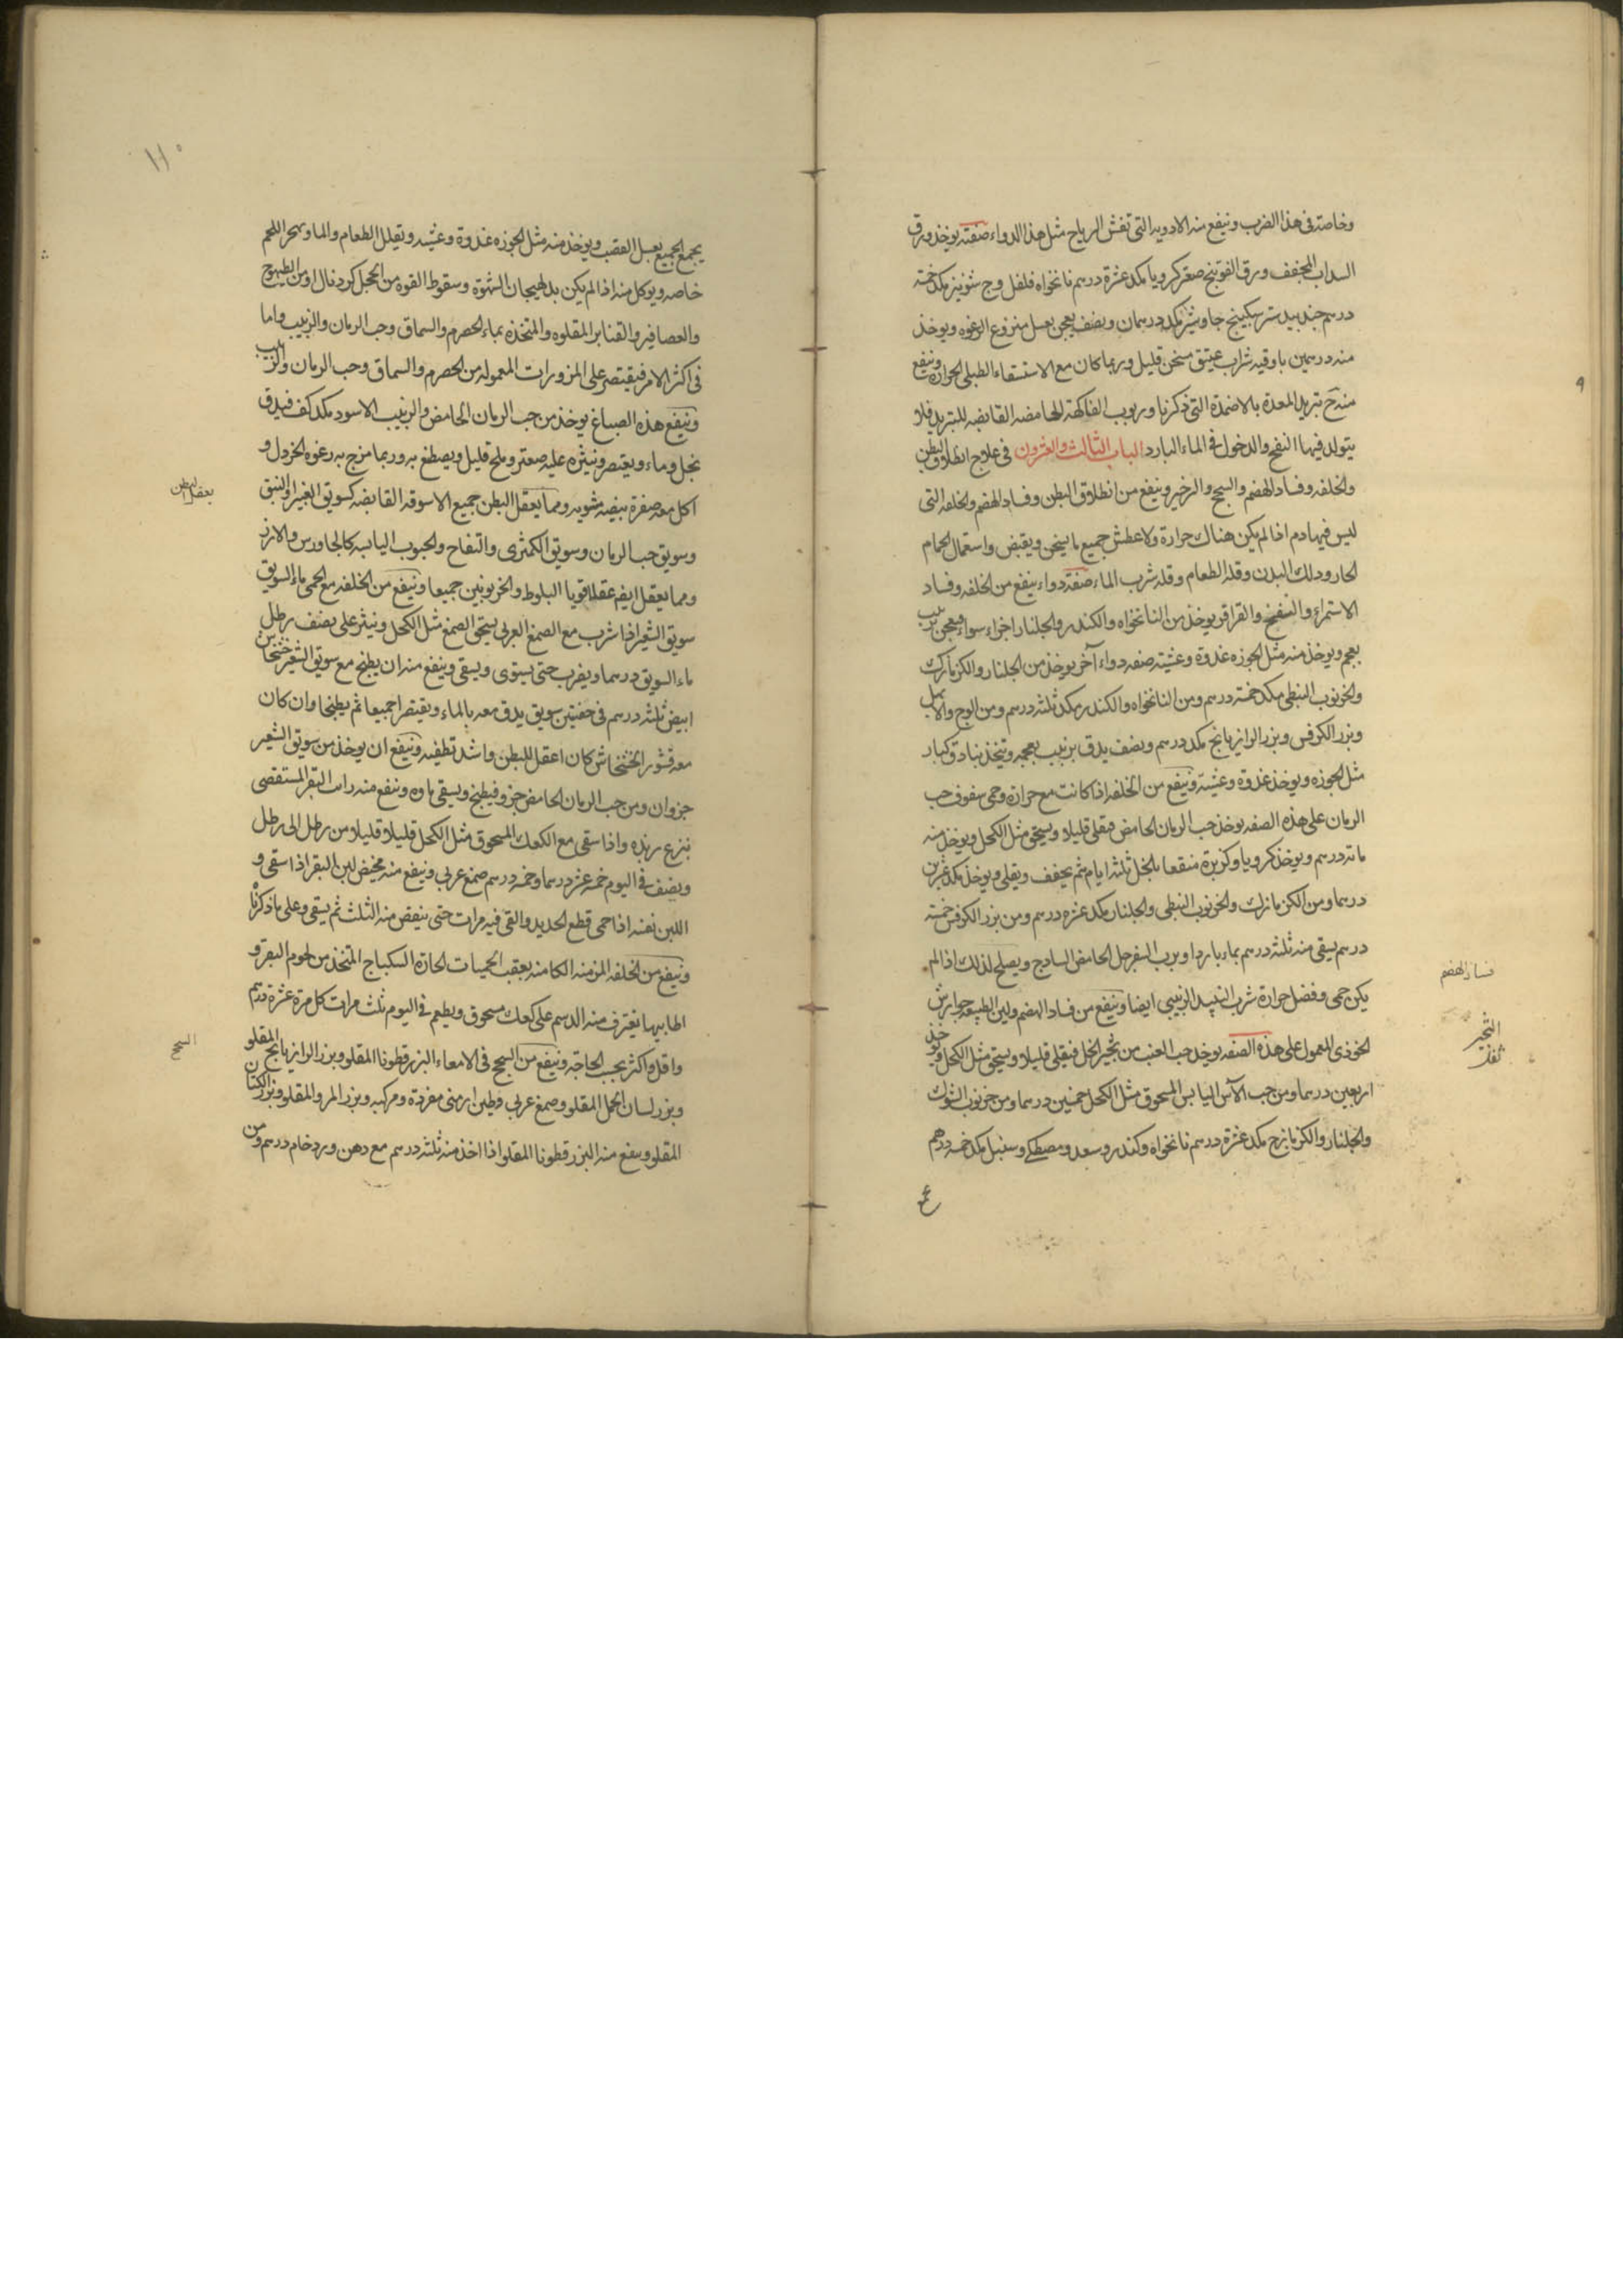 وخاصة فى هذا الضرب وينفع منه الادويه التى تفش الرياح مثل هذا الدواء صفته يوخذ ورق
السداب المجفف وورق الفوتنج صعتر كرويا مكد عشرة درهم نانخواه فلفل وج شونيز مكد خمسة
درهم جندبيدستر سكبينج جاوشير مكد درهمان ونصف يعجن بعسل منزوع الرغوه ويوخذ
منه درهمين باوقيه شراب عتيق مسخن قليل وربما كان مع الاستسقاء الطبلى الحرارة وينفع
منه ح تبريد المعدة بالاضمدة التى ذكرنا وربوب الفاكهة الحامضه القابضه للتبريد فلا
يتولد فيها النفخ والدخول فى الماء البارد الباب الثالث والعشرون فى علاج انطلاق البطن
والخلفه وفساد الهضم والسحج والزحير وينفع من انطلاق البطن وفساد الهضم والخلفه التى
ليس فيها دم اذا لم يكن هناك حرارة ولا عطش جميع ما يسخن ويقبض واستعمال الحمام
الحار ودلك البدن وقلة الطعام وقلة شرب الماء صفة دواء ينفع من الخلفه وفساد
الاستمراء والنفخ والقراقر يوخذ من النانخواه والكندر والجلنار اجزاء سواء ويعجن بزبيب
بعجم ويوخذ منه مثل الجوزه غدوة وعشية صفه دواء آخر يوخذ من الجلنار والكزمازك
والخرنوب النبطى مكد خمسة درهم ومن النانخواه والكندر مكد ثلثه درهم ومن الوج والابهل
وبزر الكرفس وبزر الرازيانج مكد درهم ونصف يدق بزبيب بعجمه ويتخذ بنادق كبار
مثل الجوزه ويوخذ غدوة وعشية وينفع من الخلفه اذا كانت مع حرارة وحمى سفوف حب
الرمان على هذه الصفه يوخذ حب الرمان الحامض فيقلى قليلا ويسحق مثل الكحل ويوخذ منه
مائة درهم ويوخذ كرويا وكزبرة منقعا بالخل ثلثه ايام ثم يجفف ويقلى ويوخذ مكد عشرين
درهما ومن الكزمازك والخرنوب النبطى والجلنار مكد عشره درهم ومن بزر الكرفس خمسة
درهم يسقى منه ثلثه درهم بماء بارد او برب السفرجل الحامض الساذج ويصلح لذلك اذا لم
يكن حمى وفضل حرارة شرب النبيذ الزبيبى ايضا وينفع من فساد الهضم ولين الطبيعه جوارش
الخوزى المعمول على هذه الصفه يوخذ حب العنب من ثجير الخل فيقلى قليلا ويسحق مثل الكحل ويوخذ
اربعين درهما ومن حب الآس اليابس المسحوق مثل الكحل خمسين درهما ومن خرنوب الشوك
والجلنار والكزمازج مكد عشرة درهم نانخواه وكندر وسعد ومصطكى وسنبل مكد خمسه درهم
فساد الهضم
الثجير
ثفل
يجمع الجميع بعسل القصب ويوخذ منه مثل الجوزه غدوة وعشيه ويقلل الطعام والماء ويهجر اللحم
خاصه ويوكل منه اذا لم يكن بد لهيجان الشهوة وسقوط القوه من الحجل كردناك او من الطيهوج
والعصافير والقنابر المقلوه والمتخذه بماء الحصرم والسماق وحب الرمان والزبيب واما
فى اكثر الامر فيقتصر على المزورات المعموله من الحصرم والسماق وحب الرمان والزبيب
وينفع هذه الصباغ يوخذ من حب الرمان الحامض والزبيب الاسود مكد كف فيدق
بخل وماء ويعتصر وينثره عليه صعتر وملح قليل ويصطبغ به وربما مزج به رغوه الخردل و
اكل معه صفرة بيضه مشويه ومما يعقل البطن جميع الاسوقه القابضه كسويق الغبيرا والنبق
وسويق حب الرمان وسويق الكمثرى والتفاح والحبوب اليابسه كالجاورس والارز
ومما يعقل ايضا عقلا قويا البلوط والخرنوبين جميعا وينفع من الخلفه مع الحمى ماء السويق
سويق الشعير اذا شرب مع الصمغ العربى يسحق الصمغ مثل الكحل وينثر على نصف رطل
ماء السويق درهما ويضرب حتى يستوى ويسقى وينفع منه ان يطبخ مع سويق الشعير خشخاش
ابيض ثلثه درهم فى حفنتين سويق يدق معه بالماء ويعتصرا جميعا ثم يطبخا وان كان
معه قشور الخشخاش كان اعقل للبطن واشد تطفيه وينفع ان يوخذ من سويق الشعير
جزوان ومن حب الرمان الحامض جزو فيطبخ ويسقى ماوه وينفع منه رايب البقر المستقصى
بنزع زبده واذا سقى مع الكعك المسحوق مثل الكحل قليلا قليلا من رطل الى رطل
ونصف فى اليوم خمسه عشر درهما وخمسه درهم صمغ عربى وينفع منه مخيض لبن البقر اذا سقى و
اللبن نفسه اذا حمى قطع الحديد والقى فيه مرات حتى ينقص منه الثلث ثم يسقى وعلى ما ذكرنا
وينفع من الخلفه المزمنه الكائنه بعقب الحميات الحاره السكباج المتخذ من لحوم البقر و
اطايبها يغترف منه الدسم على كعك مسحوق ويطعم فى اليوم ثلث مرات كل مرة عشرة درهم
واقل واكثر بحسب الحاجه وينفع من السحج فى الامعاء البزر قطونا المقلو وبزر الرازيانج المقلو
وبزر لسان الحمل المقلو وصمغ عربى وطين ارمنى مفردة ومركبه وبزر المرو المقلو وبزر الكتان
المقلو وينفع منه البزر قطونا المقلو اذا اخذ منه ثلثه درهم مع دهن ورد خام درهم ومن
يعقل البطن
السحج